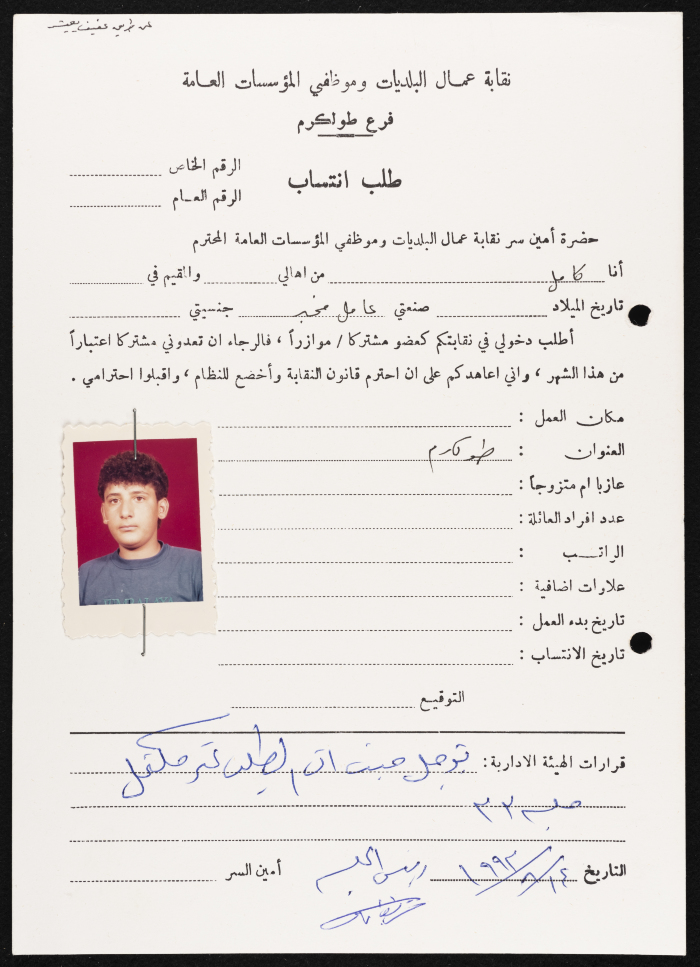 عن طريق عفيف
نقابة عمال البلديات وموظفي المؤسسات العامة
فرع طولكرم
الرقم الخاص
طلب انتساب
الرقم العام
حضرة أمين سر نقابة عمال البلديات وموظفي المؤسسات العامة المحترم
أنا كامل من اهالي والمقيم في
تاريخ الميلاد صنعتي عامل مخبز جنسيتي
أطلب دخولي في نقابتكم كعضو مشتركا / موازراً ، فالرجاء ان تعدوني مشتركا اعتباراً
من هذا الشهر ، واني اعاهدكم على ان احترم قانون النقابة وأخضع للنظام ، واقبلوا احترامي .
مكان العمل :
العنوان : طولكرم
عازبا ام متزوجاً :
عدد افراد العائلة :
الراتب :
علاوات اضافية :
تاريخ بدء العمل :
تاريخ الانتساب :
التوقيع
قرارات الهيئة الادارية : تؤجل حيث ان الطلب غير مكتمل
جلسة ٣٣
التاريخ ١٩٩٣/٨/١٤ رئيس الجلسة أمين السر